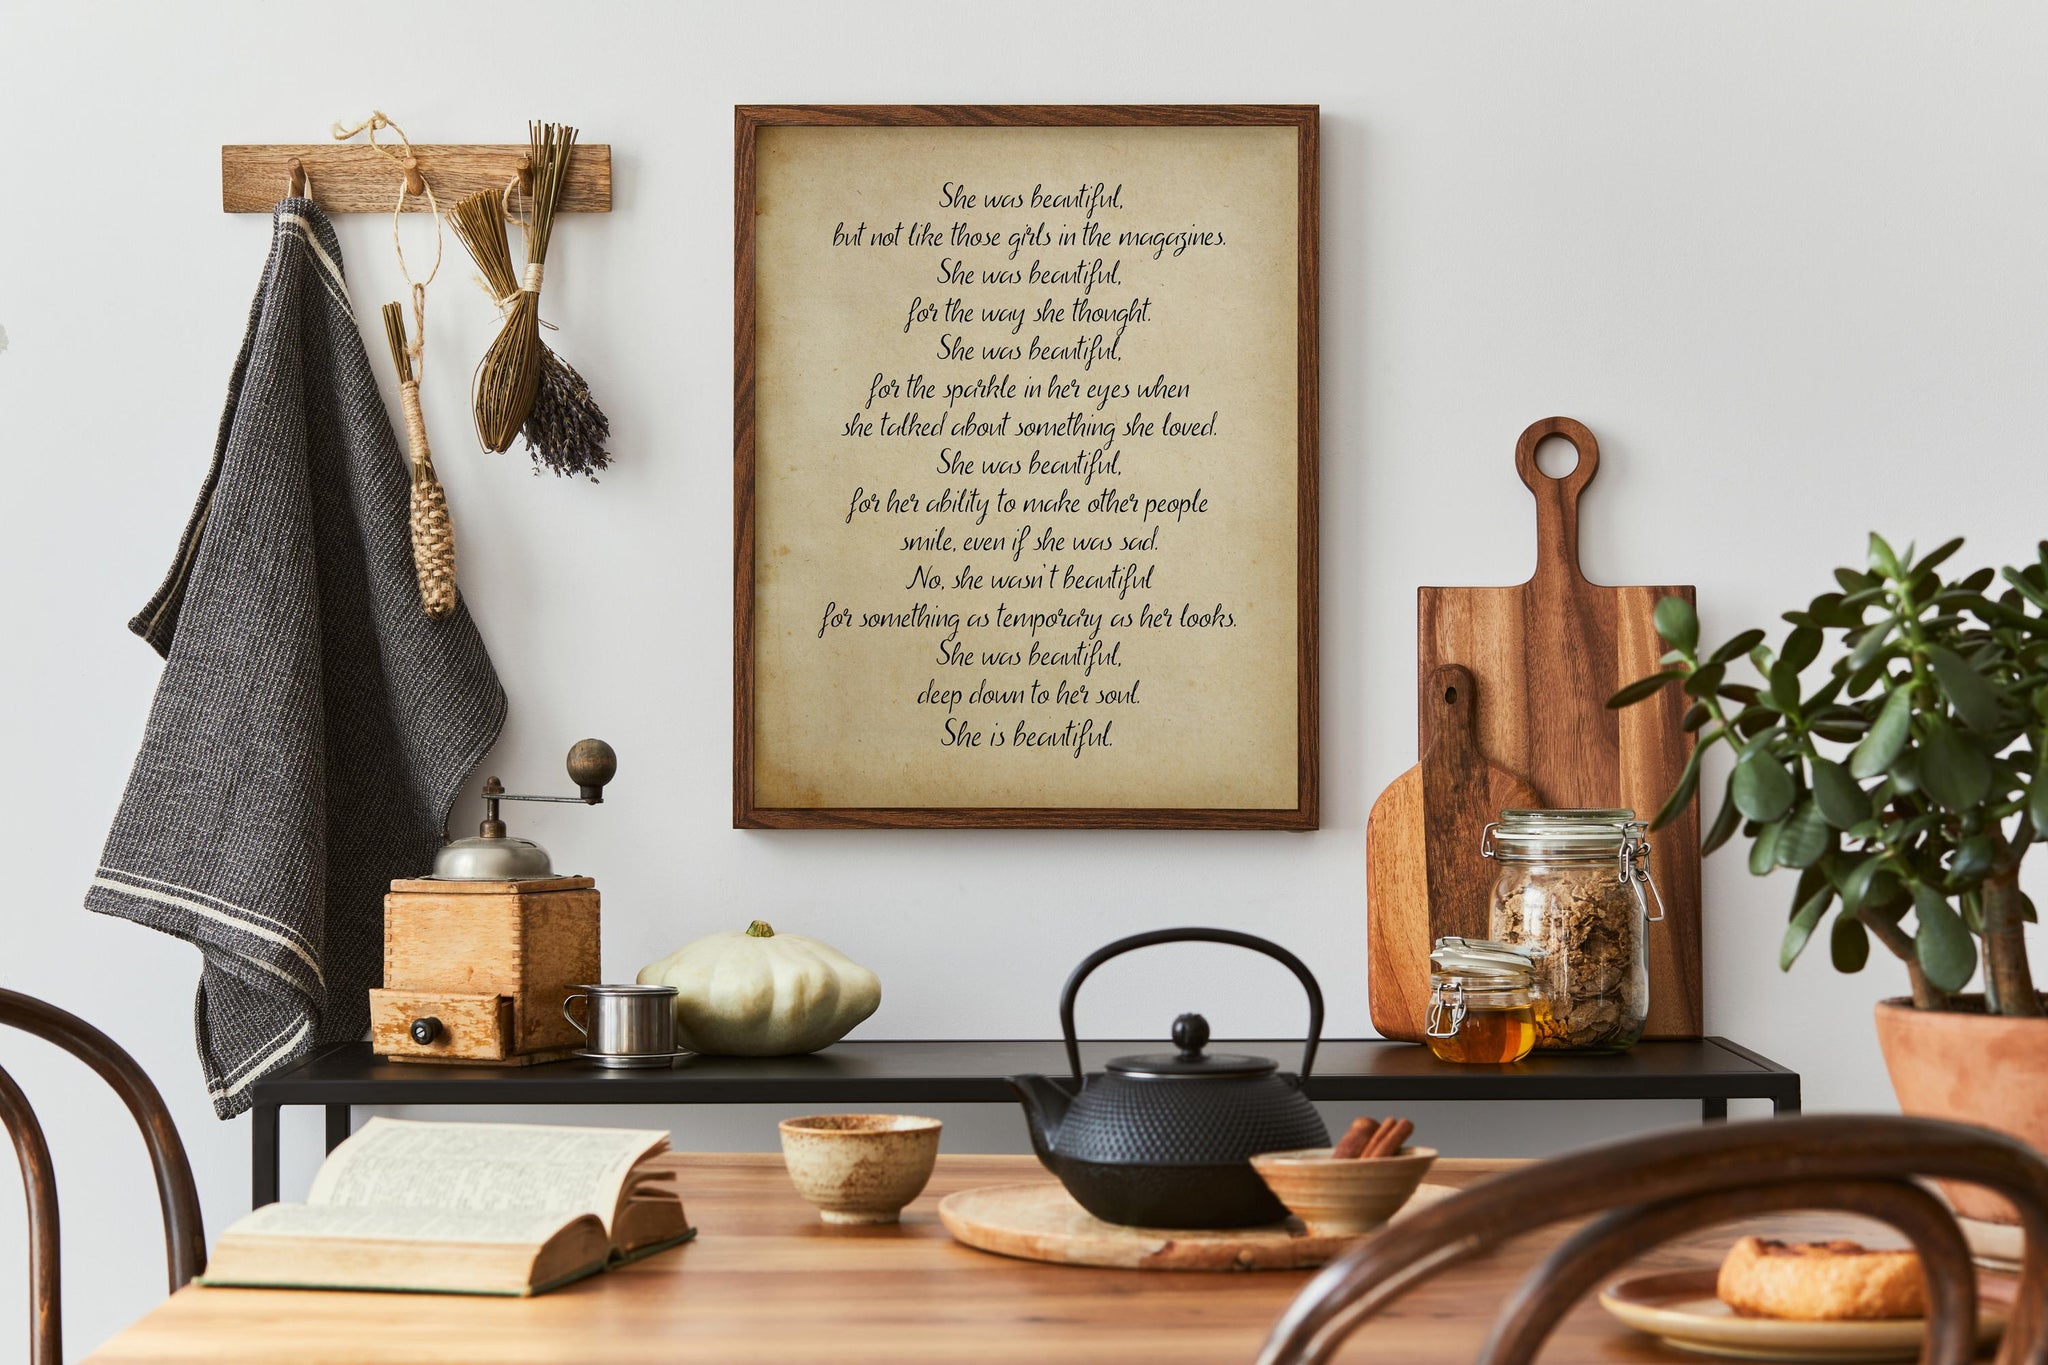 She was beautiful,
but not like those girls in the magazines.
She was beautiful,
for the way she thought.
She was beautiful,
for the sparkle in her eyes when
she talked about something she loved.
She was beautiful,
for her ability to make other people
smile, even if she was sad.
No, she wasn't beautiful
for something as temporary as her looks.
She was beautiful,
deep down to her soul.
She is beautiful.